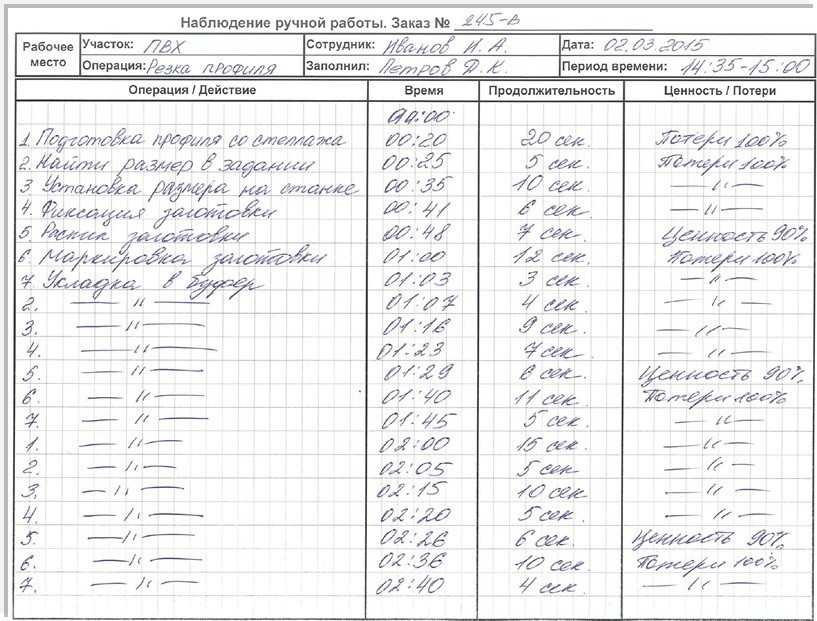 Наблюдение ручной работы. Заказ № 245-В
Рабочее место Участок: ПВХ Сотрудник: Иванов И. А. Дата: 02.03.2015
Операция: Резка профиля Заполнил: Петров Д. К. Период времени: 14:35-15:00
Операция / Действие Время Продолжительность Ценность / Потери
00:00
1. Подготовка профиля со стеллажа 00:20 20 сек. Потери 100%
2. Найти размер в задании 00:25 5 сек. Потери 100%
3. Установка размера на станке 00:35 10 сек — 〃 —
4. Фиксация заготовки 00:41 6 сек — 〃 —
5. Распил заготовки 00:48 7 сек. Ценность 90%
6. Маркировка заготовки 01:00 12 сек. Потери 100%
7. Укладка в буфер 01:03 3 сек. — 〃 —
2. — 〃 — 01:07 4 сек. — 〃 —
3. — 〃 — 01:16 9 сек. — 〃 —
4. — 〃 — 01:23 7 сек. — 〃 —
5. — 〃 — 01:29 6 сек. Ценность 90%
6. — 〃 — 01:40 11 сек. Потери 100%
7. — 〃 — 01:45 5 сек. — 〃 —
1. — 〃 — 02:00 15 сек. — 〃 —
2. — 〃 — 02:05 5 сек — 〃 —
3. — 〃 — 02:15 10 сек — 〃 —
4. — 〃 — 02:20 5 сек. — 〃 —
5. — 〃 — 02:26 6 сек. Ценность 90%
6. — 〃 — 02:36 10 сек. Потери 100%
7. — 〃 — 02:40 4 сек. — 〃 —